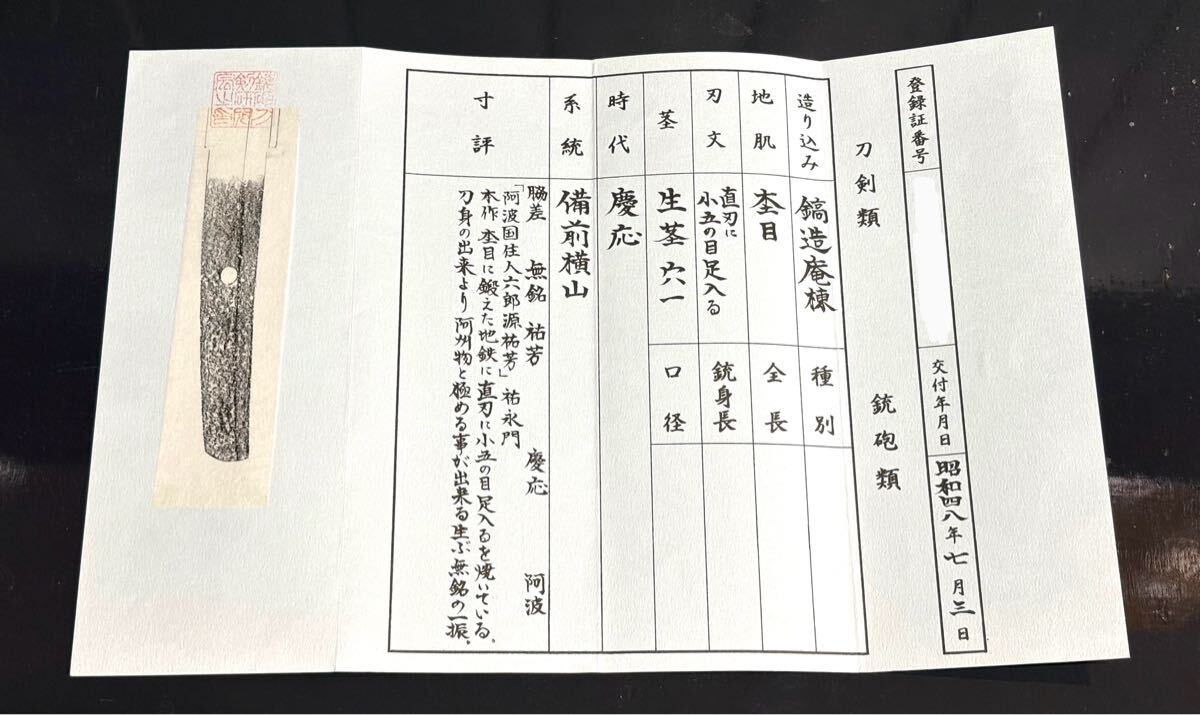 登録証番号
交付年月日
昭和四八年七月三日
刀剣類
銃砲類
造り込み
鎬造庵棟
種別
地肌
杢目
全長
刃文
直刃に
小五の目足入る
銃身長
茎
生茎穴一
口径
時代
慶応
系統
備前横山
寸評
脇差 無銘 祐芳 慶応 阿波
「阿波国住人六郎源祐芳」祐永門
本作杢目に鍛えた地鉄に直刃に小五の目足入るを焼いている。
刀身の出来より阿州物と極める事が出来る生ぶ無銘の一振。